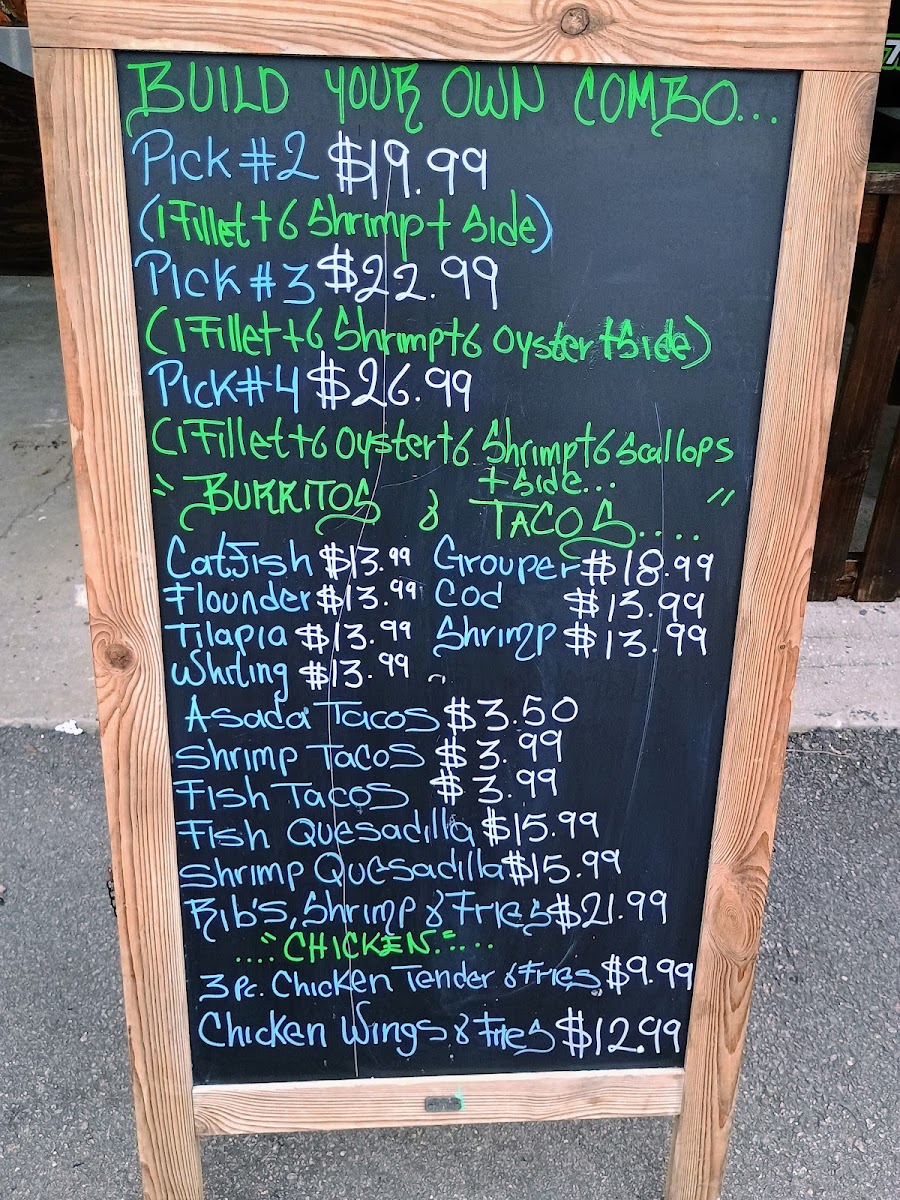 BUILD YOUR OWN COMBO...
Pick #2 $19.99
(1 Fillet + 6 Shrimp + Side)
Pick #3 $22.99
(1 Fillet + 6 Shrimp + 6 Oyster + Side)
Pick #4 $26.99
(1 Fillet + 6 Oyster + 6 Shrimp + 6 Scallops
+ Side...
"BURRITOS & TACOS....."
Catfish $13.99 Grouper $18.99
Flounder $13.99 Cod $13.99
Tilapia $13.99 Shrimp $13.99
Whiting $13.99
Asada Tacos $3.50
Shrimp Tacos $3.99
Fish Tacos $3.99
Fish Quesadilla $15.99
Shrimp Quesadilla $15.99
Rib's, Shrimp & Fries $21.99
...."CHICKEN."....
3 Pc. Chicken Tender & Fries $9.99
Chicken Wings & Fries $12.99
7